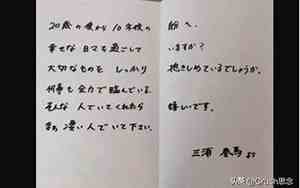 20歳の僕から10年後の 僕へ。
幸せな日々を過ごして いますか?
大切なものをしっかり 抱きしめているでしょうか。
何事も全力で臨んでいる。
そんな人でいてくれたら 嬉しいです。
凄い人でいて下さい。
三浦 春馬 より
头条 @Crush思念